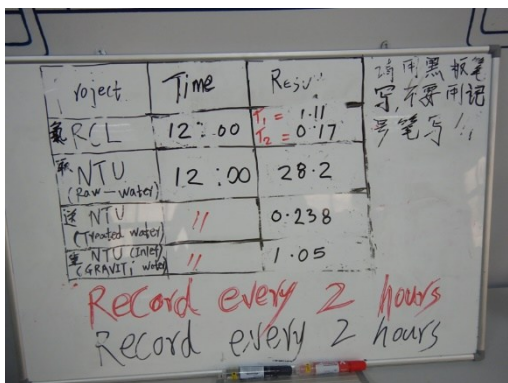 Project Time Resu
氯 RCL 12:00 T₁ = 1.11
T₂ = 0.17
取 NTU
(Raw-water) 12:00 28.2
送 NTU
(Treated water) 〃 0.238
重 NTU (Inlet)
(GRAVITi water) 〃 1.05
请用黑板笔
写,不要用记
号笔写!
Record every 2 hours
Record every 2 hours